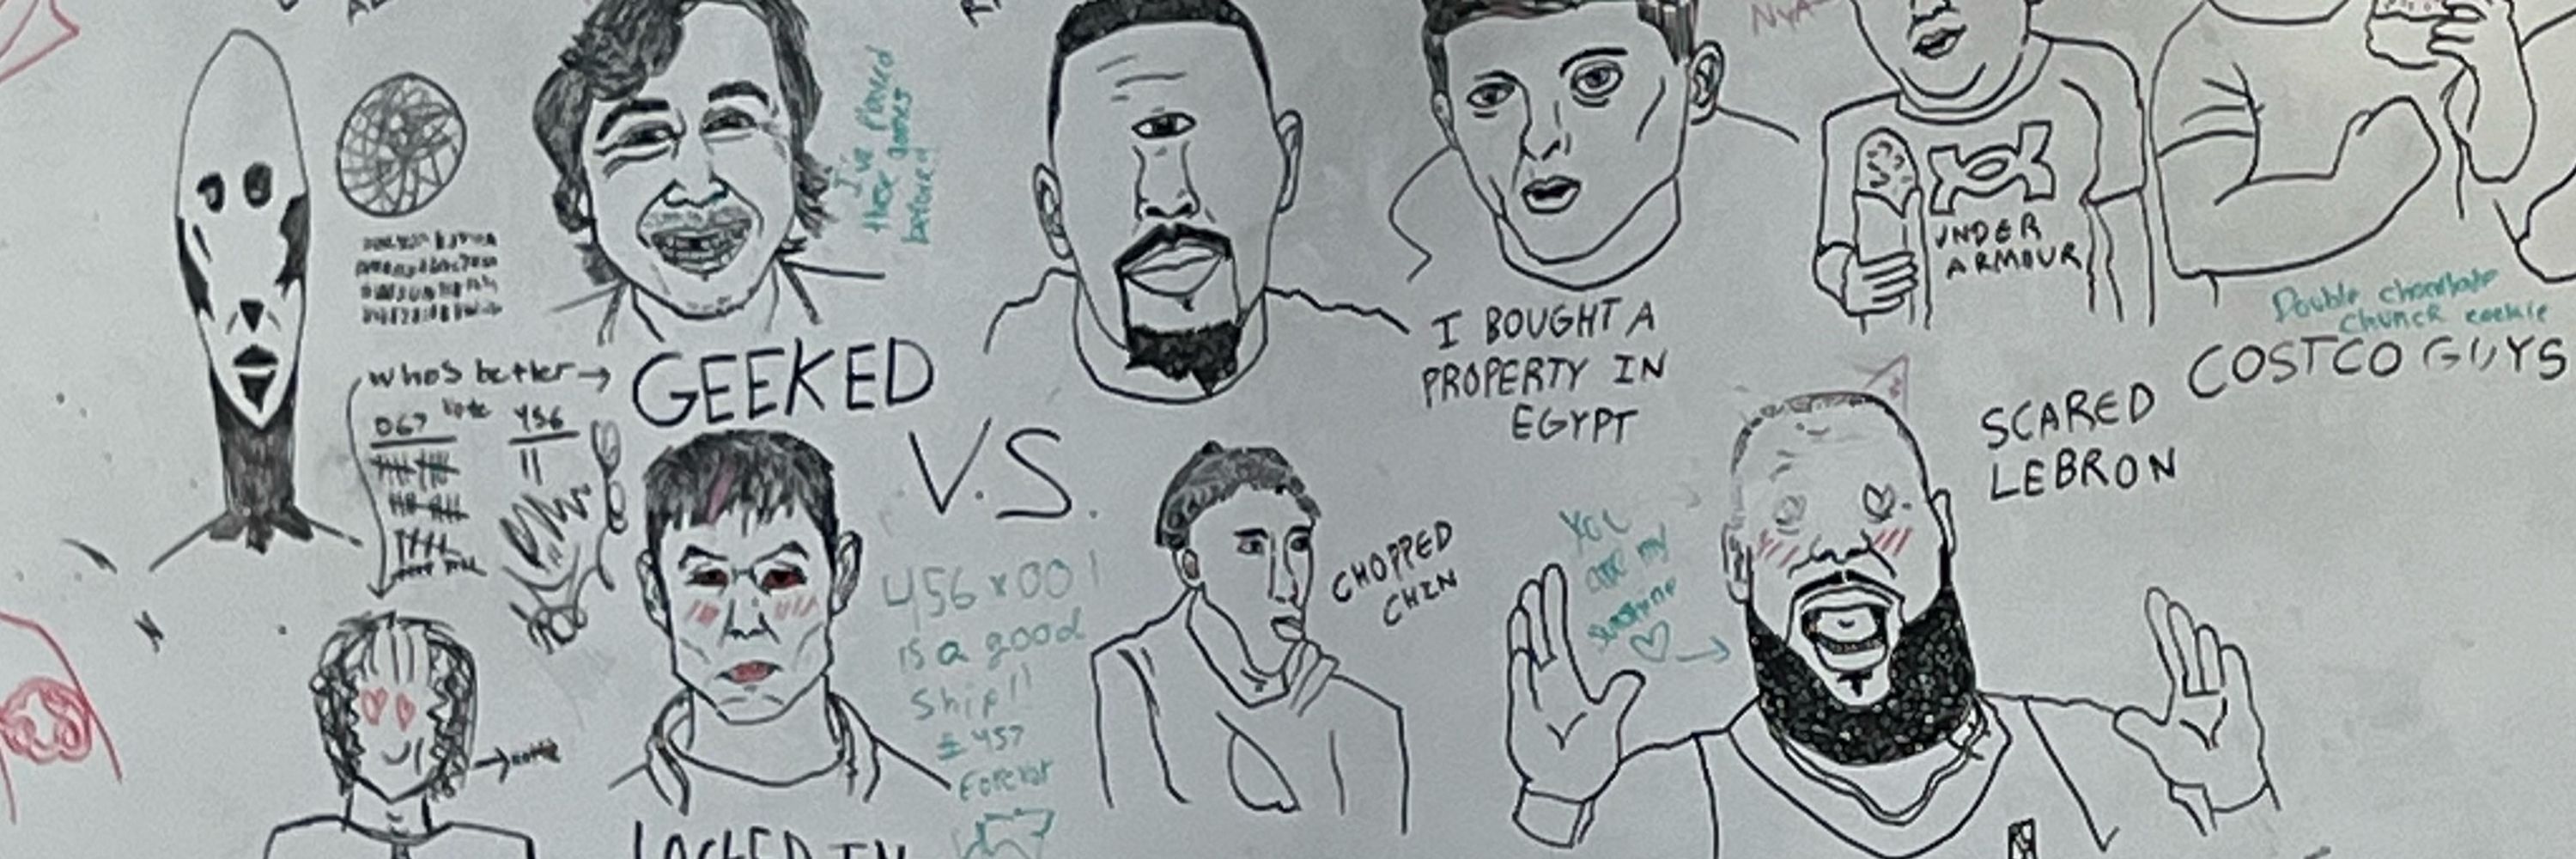 I've played
these games
before!
UNDER
ARMOUR
Double chocolate
chunck cookie
COSTCO GUYS
I BOUGHT A
PROPERTY IN
EGYPT
who's better
Vote
067 456
GEEKED
V.S.
SCARED
LEBRON
CHOPPED
CHIN
You
are my
sunshine
456 x 001
is a good
ship!!
± 457
Forever
LOCKED IN